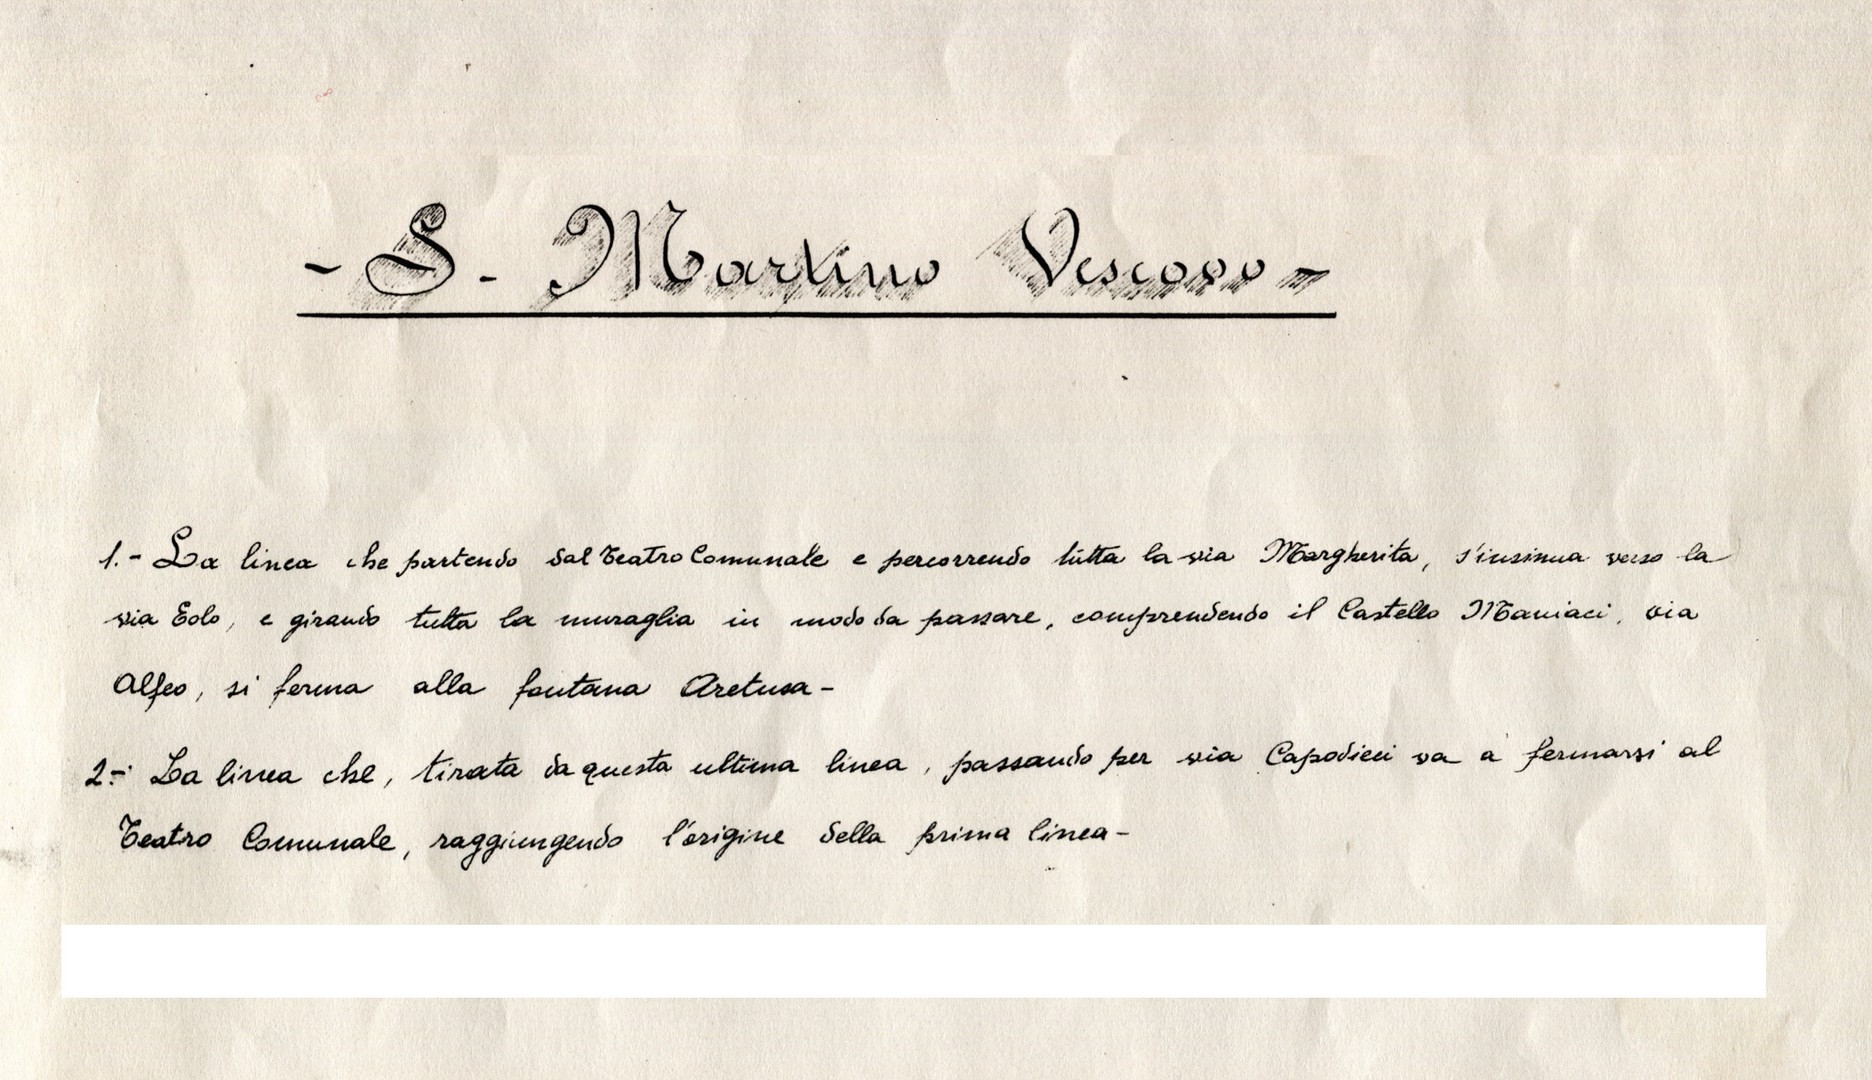 - S. Martino Vescovo -
1.- La linea che partendo dal Teatro Comunale e percorrendo tutta la via Margherita, s'insinua verso la
via Eolo, e girando tutta la muraglia in modo da passare, comprendendo il Castello Maniaci, via
Alfeo, si ferma alla fontana Aretusa-
2.- La linea che, tirata da questa ultima linea, passando per via Capodieci va a fermarsi al
Teatro Comunale, raggiungendo l'origine della prima linea-